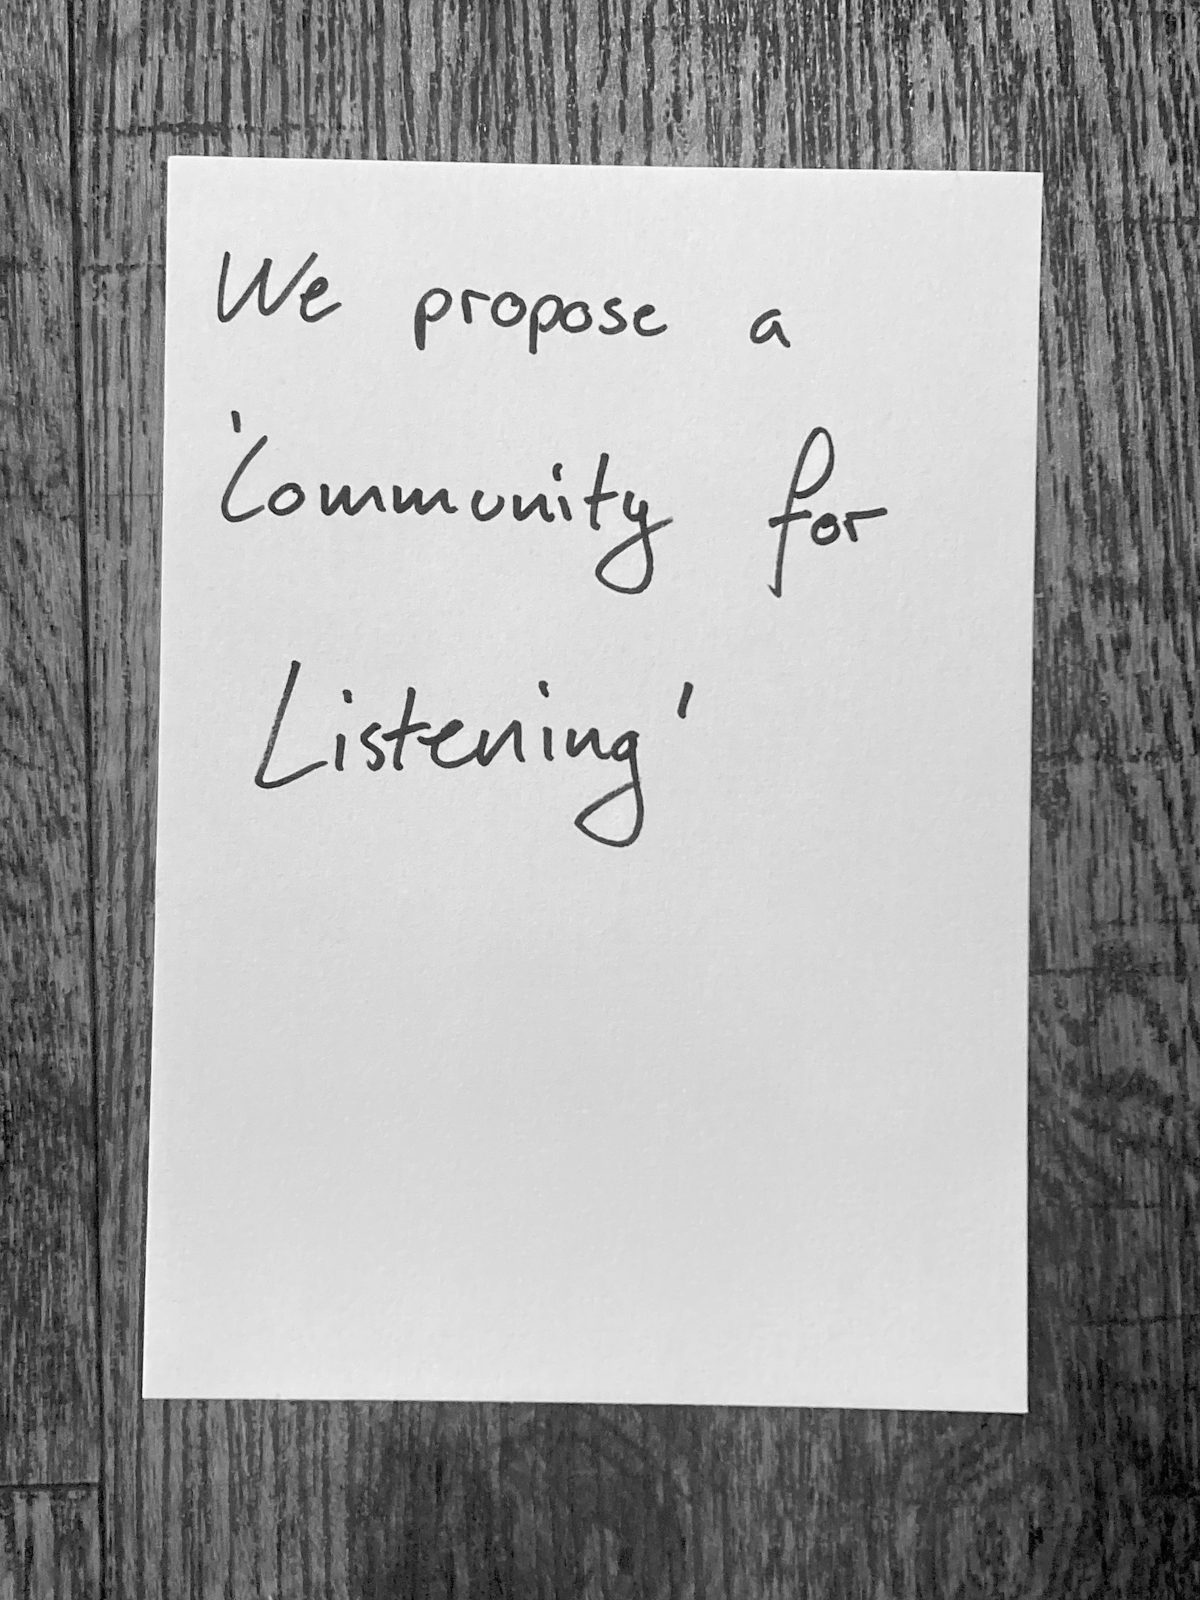 We propose a
'Community for
Listening'